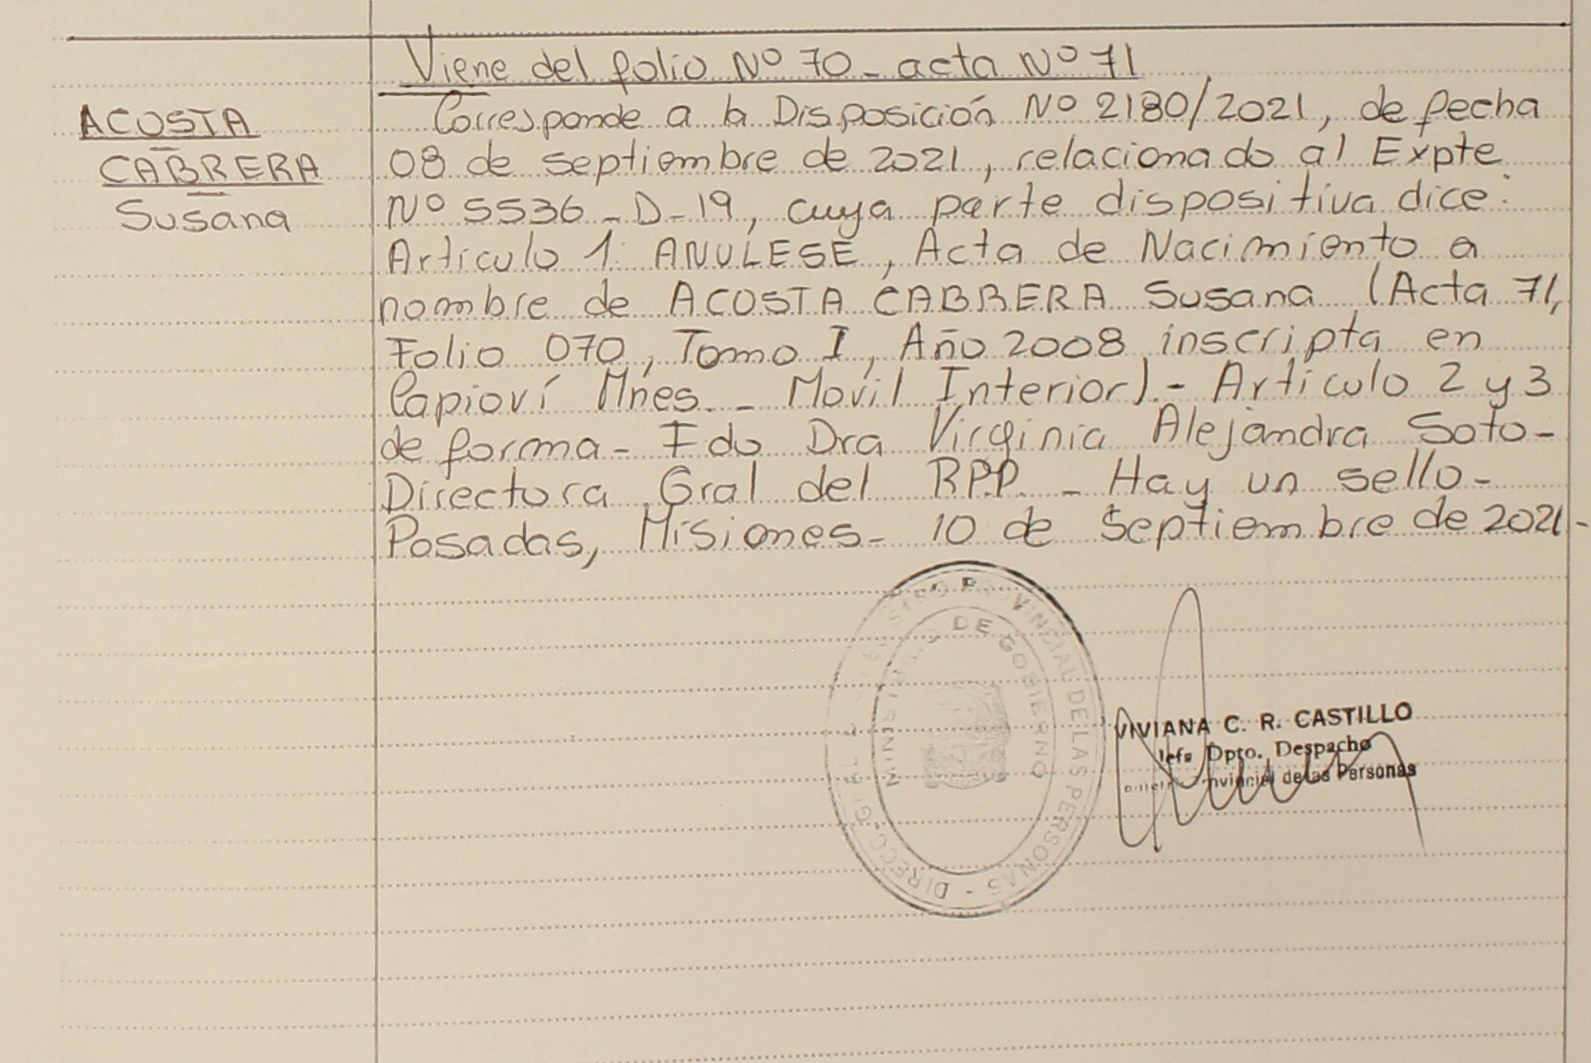 Viene del folio Nº 70 - acta Nº 71
ACOSTA
CABRERA
Susana
Corresponde a la Disposición Nº 2180/2021, de fecha
08 de septiembre de 2021, relacionado al Expte
Nº 5536 - D - 19, cuya parte dispositiva dice:
Artículo 1: ANULESE, Acta de Nacimiento a
nombre de ACOSTA CABRERA Susana (Acta 71,
Folio 070, Tomo I, Año 2008 inscripta en
Capioví Mnes. - Movil Interior).- Artículo 2 y 3
de forma - Fdo Dra Virginia Alejandra Soto -
Directora Gral del RPP. - Hay un sello -
Posadas, Misiones - 10 de Septiembre de 2021 -
PROVINCIAL DE LAS PERSONAS - DIRECC. GRAL
MINISTERIO DE GOBIERNO
VIVIANA C. R. CASTILLO
Jefe Dpto. Despacho
Provincial de las Personas